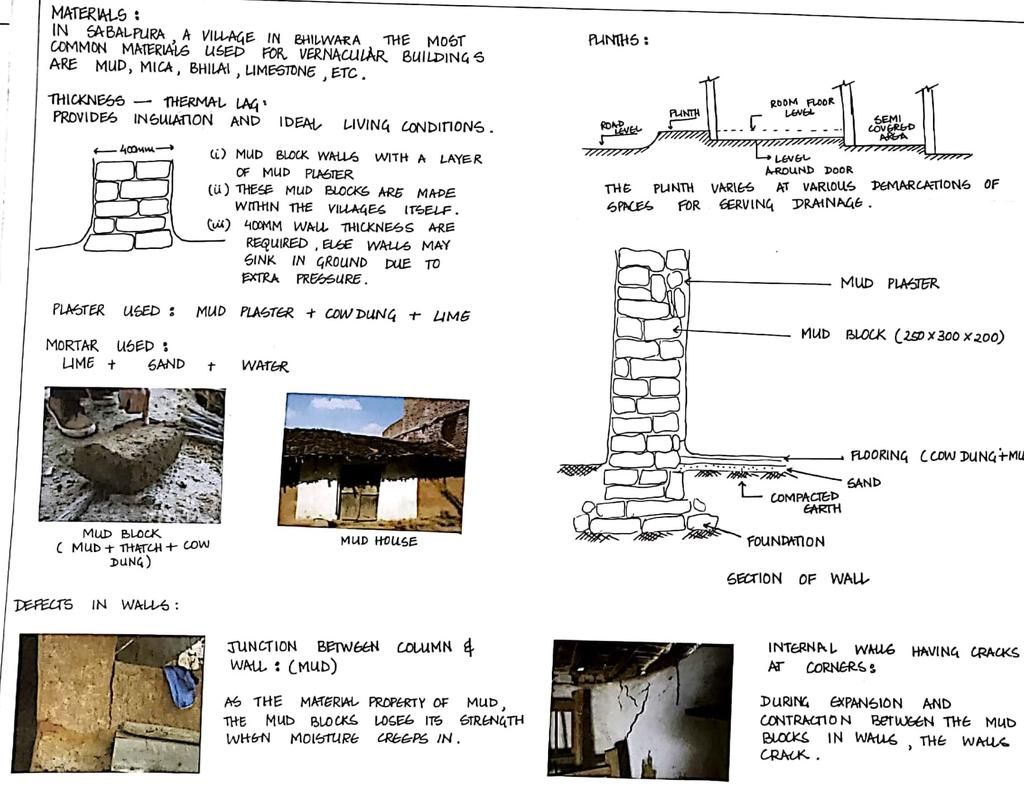 MATERIALS:
IN SABALPURA, A VILLAGE IN BHILWARA THE MOST
COMMON MATERIALS USED FOR VERNACULAR BUILDINGS
ARE MUD, MICA, BHILAI, LIMESTONE, ETC.
THICKNESS — THERMAL LAG:
PROVIDES INSULATION AND IDEAL LIVING CONDITIONS.
400mm
(i) MUD BLOCK WALLS WITH A LAYER
OF MUD PLASTER
(ii) THESE MUD BLOCKS ARE MADE
WITHIN THE VILLAGES ITSELF.
(iii) 400MM WALL THICKNESS ARE
REQUIRED, ELSE WALLS MAY
SINK IN GROUND DUE TO
EXTRA PRESSURE.
PLASTER USED: MUD PLASTER + COW DUNG + LIME
MORTAR USED:
LIME + SAND + WATER
MUD BLOCK
(MUD + THATCH + COW
DUNG)
MUD HOUSE
PLINTHS:
ROAD
LEVEL
PLINTH
ROOM FLOOR
LEVEL
SEMI
COVERED
AREA
LEVEL
AROUND DOOR
THE PLINTH VARIES AT VARIOUS DEMARCATIONS OF
SPACES FOR SERVING DRAINAGE.
MUD PLASTER
MUD BLOCK (250X300X200)
FLOORING (COW DUNG+MU
SAND
COMPACTED
EARTH
FOUNDATION
SECTION OF WALL
DEFECTS IN WALLS:
JUNCTION BETWEEN COLUMN &
WALL: (MUD)
AS THE MATERIAL PROPERTY OF MUD,
THE MUD BLOCKS LOSES ITS STRENGTH
WHEN MOISTURE CREEPS IN.
INTERNAL WALLS HAVING CRACKS
AT CORNERS:
DURING EXPANSION AND
CONTRACTION BETWEEN THE MUD
BLOCKS IN WALLS, THE WALLS
CRACK.